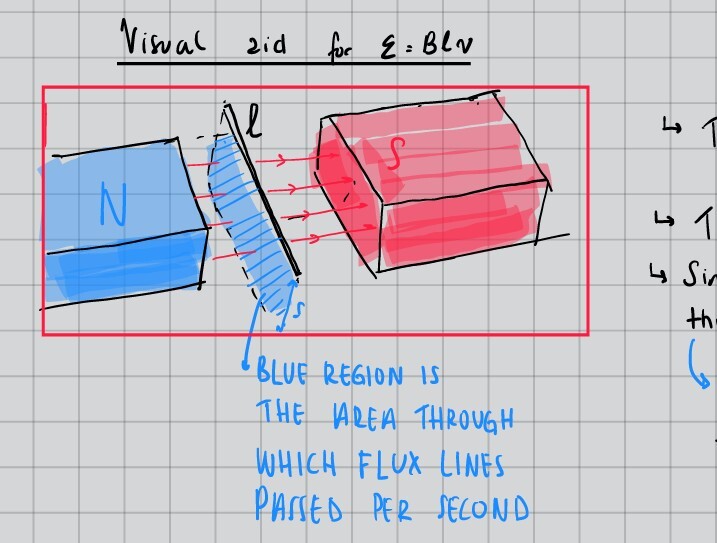 Visual aid for ε = Blv
l
N
S
s
BLUE REGION IS
THE AREA THROUGH
WHICH FLUX LINES
PASSED PER SECOND
↳ T
↳ T
↳ Sin
the